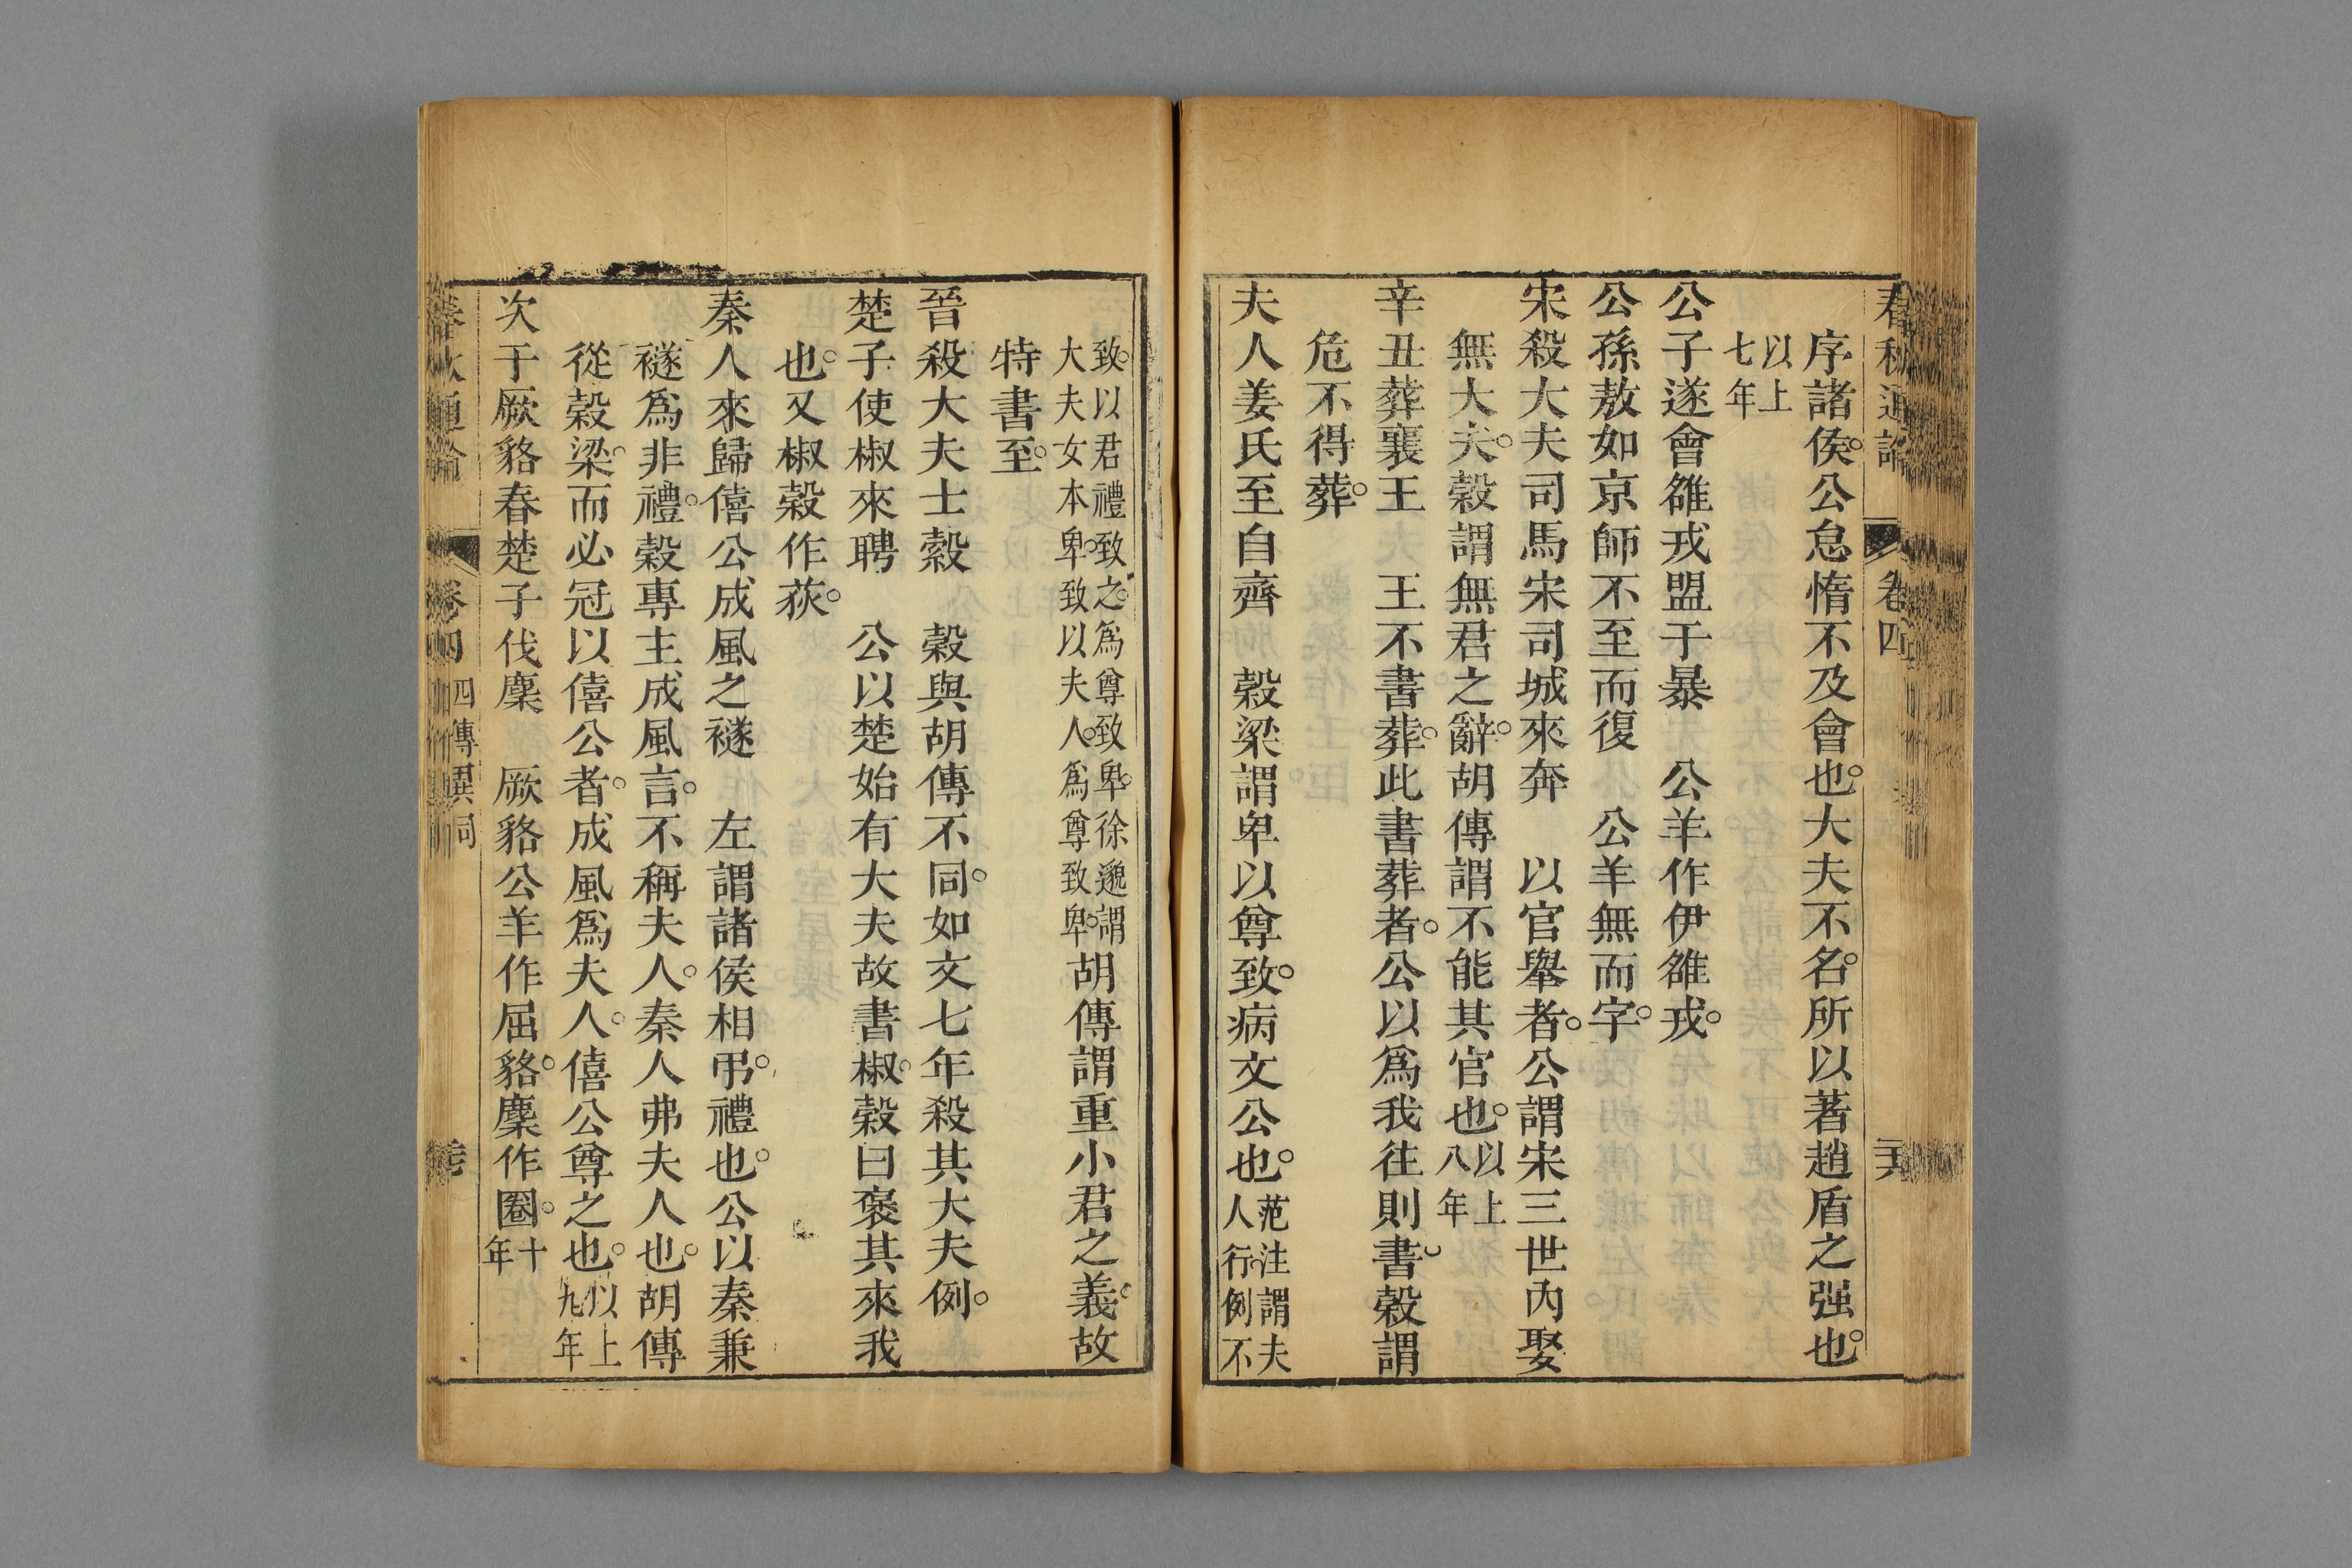 春秋通論　卷四
序諸侯。公怠惰不及會也。大夫不名。所以著趙盾之强也。
以上七年
公子遂會雒戎盟于暴　公羊作伊雒戎。
公孫敖如京師不至而復　公羊無而字。
宋殺大夫司馬宋司城來奔　以官舉者。公謂宋三世內娶
無大夫。穀謂無君之辭。胡傳謂不能其官也。以上八年
辛丑葬襄王　王不書葬。此書葬者。公以爲我往則書。穀謂
危不得葬。
夫人姜氏至自齊　穀梁謂卑以尊致。病文公也。范注謂夫人行。例不
致。以君禮致之。爲尊致卑。徐邈謂大夫女本卑。致以夫人。爲尊致卑。胡傳謂重小君之義。故
特書至。
晉殺大夫士縠　穀與胡傳不同。如文七年殺其大夫例。
楚子使椒來聘　公以楚始有大夫故書椒。穀曰褒其來我
也。又椒穀作萩。
秦人來歸僖公成風之襚　左謂諸侯相弔。禮也。公以秦兼
襚爲非禮。穀專主成風言。不稱夫人。秦人弗夫人也。胡傳
從穀梁。而必冠以僖公者。成風爲夫人。僖公尊之也。以上九年
次于厥貉春楚子伐麇　厥貉公羊作屈貉。麇作圈。十年
卷四　四傳